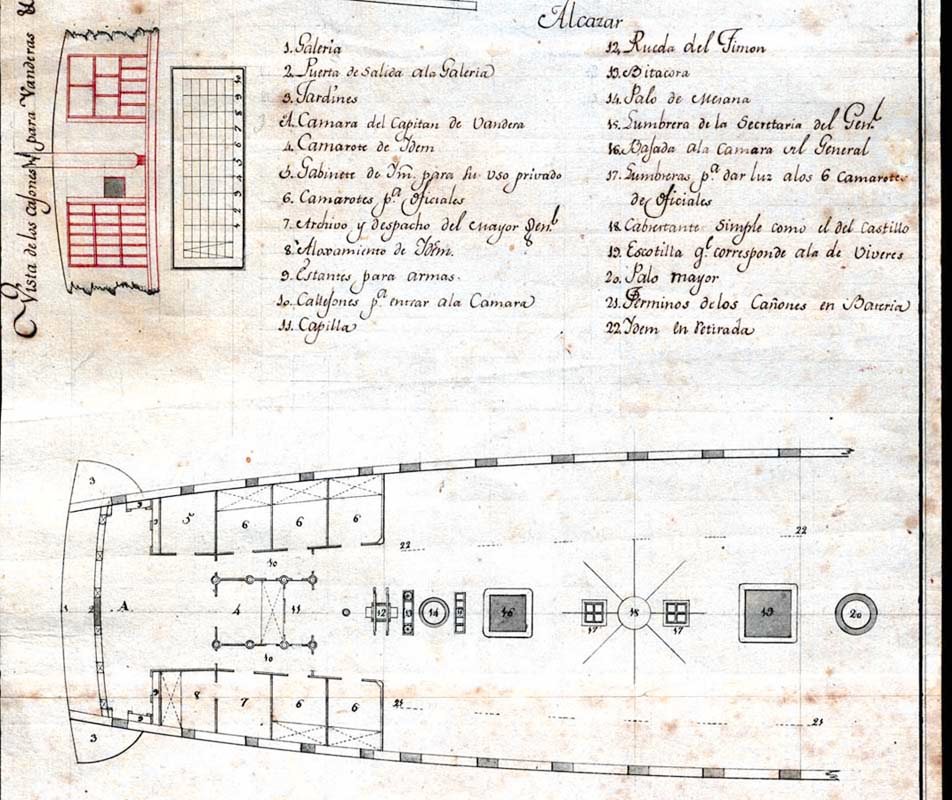 Alcazar
Vista de las Casones para Vanderas &
1. Galeria
2. Puerta de Salida ala Galeria
3. Jardines
A. Camara del Capitan de Vandera
4. Camarote de Ydem
5. Gabinete de Ym. para su uso privado
6. Camarotes pª. Oficiales
7. Archivo y despacho del Mayor Genl.
8. Aloxamiento de Ydem.
9. Estantes para armas.
10. Callejones pª entrar ala Camara
11. Capilla
12. Rueda del Timon
13. Bitacora
14. Palo de Mesana
15. Lumbrera de la Secretaria del Genl.
16. Bajada ala Camara del General
17. Lumbreras pª. dar luz alos 6 Camarotes
de Oficiales
18. Cabiertante Simple como el del Castillo
19. Escotilla q.e corresponde ala de Viveres
20. Palo mayor
21. Terminos delos Cañones en Bateria
22. Ydem en Retirada
3
9
5
6
6
6
22
22
10
1
2
A
4
11
12
13
14
16
17
15
17
19
20
10
9
8
7
6
6
21
21
9
3